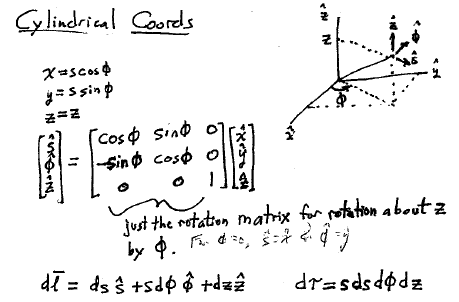 Cylindrical Coords
x = s cos ϕ
y = s sin ϕ
z = z
[ŝ ϕ̂ ẑ] = [cosϕ sinϕ 0 -sinϕ cosϕ 0 0 0 1] [x̂ ŷ ẑ]
just the rotation matrix for rotation about z
by ϕ. For ϕ=0, ŝ=x̂ & ϕ̂=ŷ
dl̄ = ds ŝ + sdϕ ϕ̂ + dz ẑ
dτ = s ds dϕ dz
ẑ
z
ẑ
ϕ̂
ŝ
ŷ
ϕ
x̂